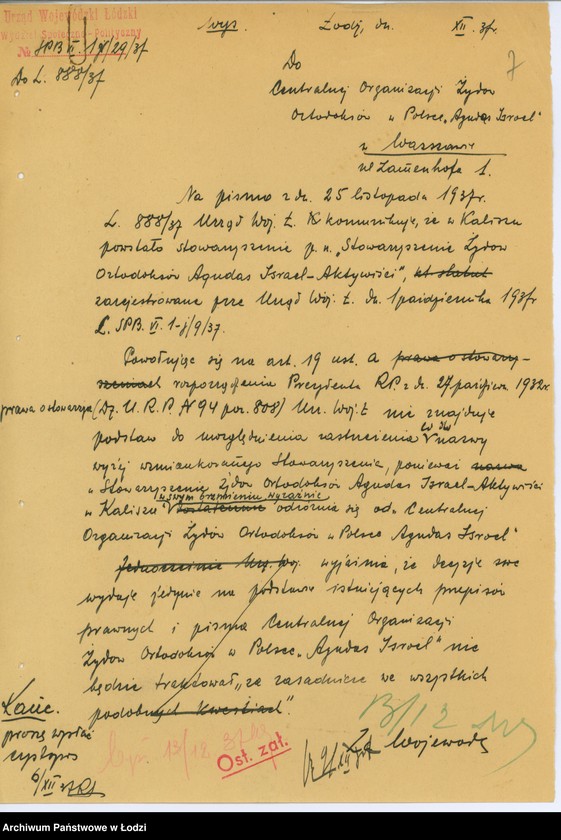 Urząd Wojewódzki Łódzki
Wydział Społeczno-Polityczny
№ SPB VI. 1-j/29/37
Do L. 888/37
Wys.
Łodź, dn. XII. 37r.
7
Do
Centralnej Organizacji Żydów
Ortodoksów w Polsce „Agudas Israel"
w Warszawie
ul Zamenhofa 1.
Na pismo z dn. 25 listopada 1937r.
L. 888/37 Urząd Woj. Ł. komunikuje, że w Kaliszu
powstało stowarzyszenie p. n. „Stowarzyszenie Żydów
Ortodoksów Agudas Israel-Aktywiści",
zarejestrowane prze Urząd Woj. Ł. dn. 1 października 1937r
L. SPB. VI. 1-j/9/37.
Powołując się na art. 19 ust. a prawa o stowarzy-
szeniach rozporządzenia Prezydenta RP. z dn. 27 październ. 1932r
prawa o stowarzysz
(Dz. U. R. P. № 94 poz. 808) Urz. Woj. Ł nie znajduje
podstaw do uwzględnienia zastrzeżenia co do nazwy
wyżej wzmiankowanego Stowarzyszenia, ponieważ nazwa
„Stowarzyszenie Żydów Ortodoksów Agudas Israel-Aktywiści
w swym brzmieniu wyraźnie
w Kaliszu" dostatecznie odróżnia się od „Centralnej
Organizacji Żydów Ortodoksów w Polsce Agudas Israel"
Jednocześnie Urz. Woj. wyjaśnia, że decyzje swe
wydaje jedynie na podstawie istniejących przepisów
prawnych i pisma Centralnej Organizacji
Żydów Ortodoksów w Polsce „Agudas Israel" nie
będzie traktował „za zasadnicze we wszystkich
podobnych kwestiach"
Kanc.
proszę wysłać
6/XII
13/12 37
Ost. zał.
B/12
Za Wojewodę
9/XII 37
Archiwum Państwowe w Łodzi